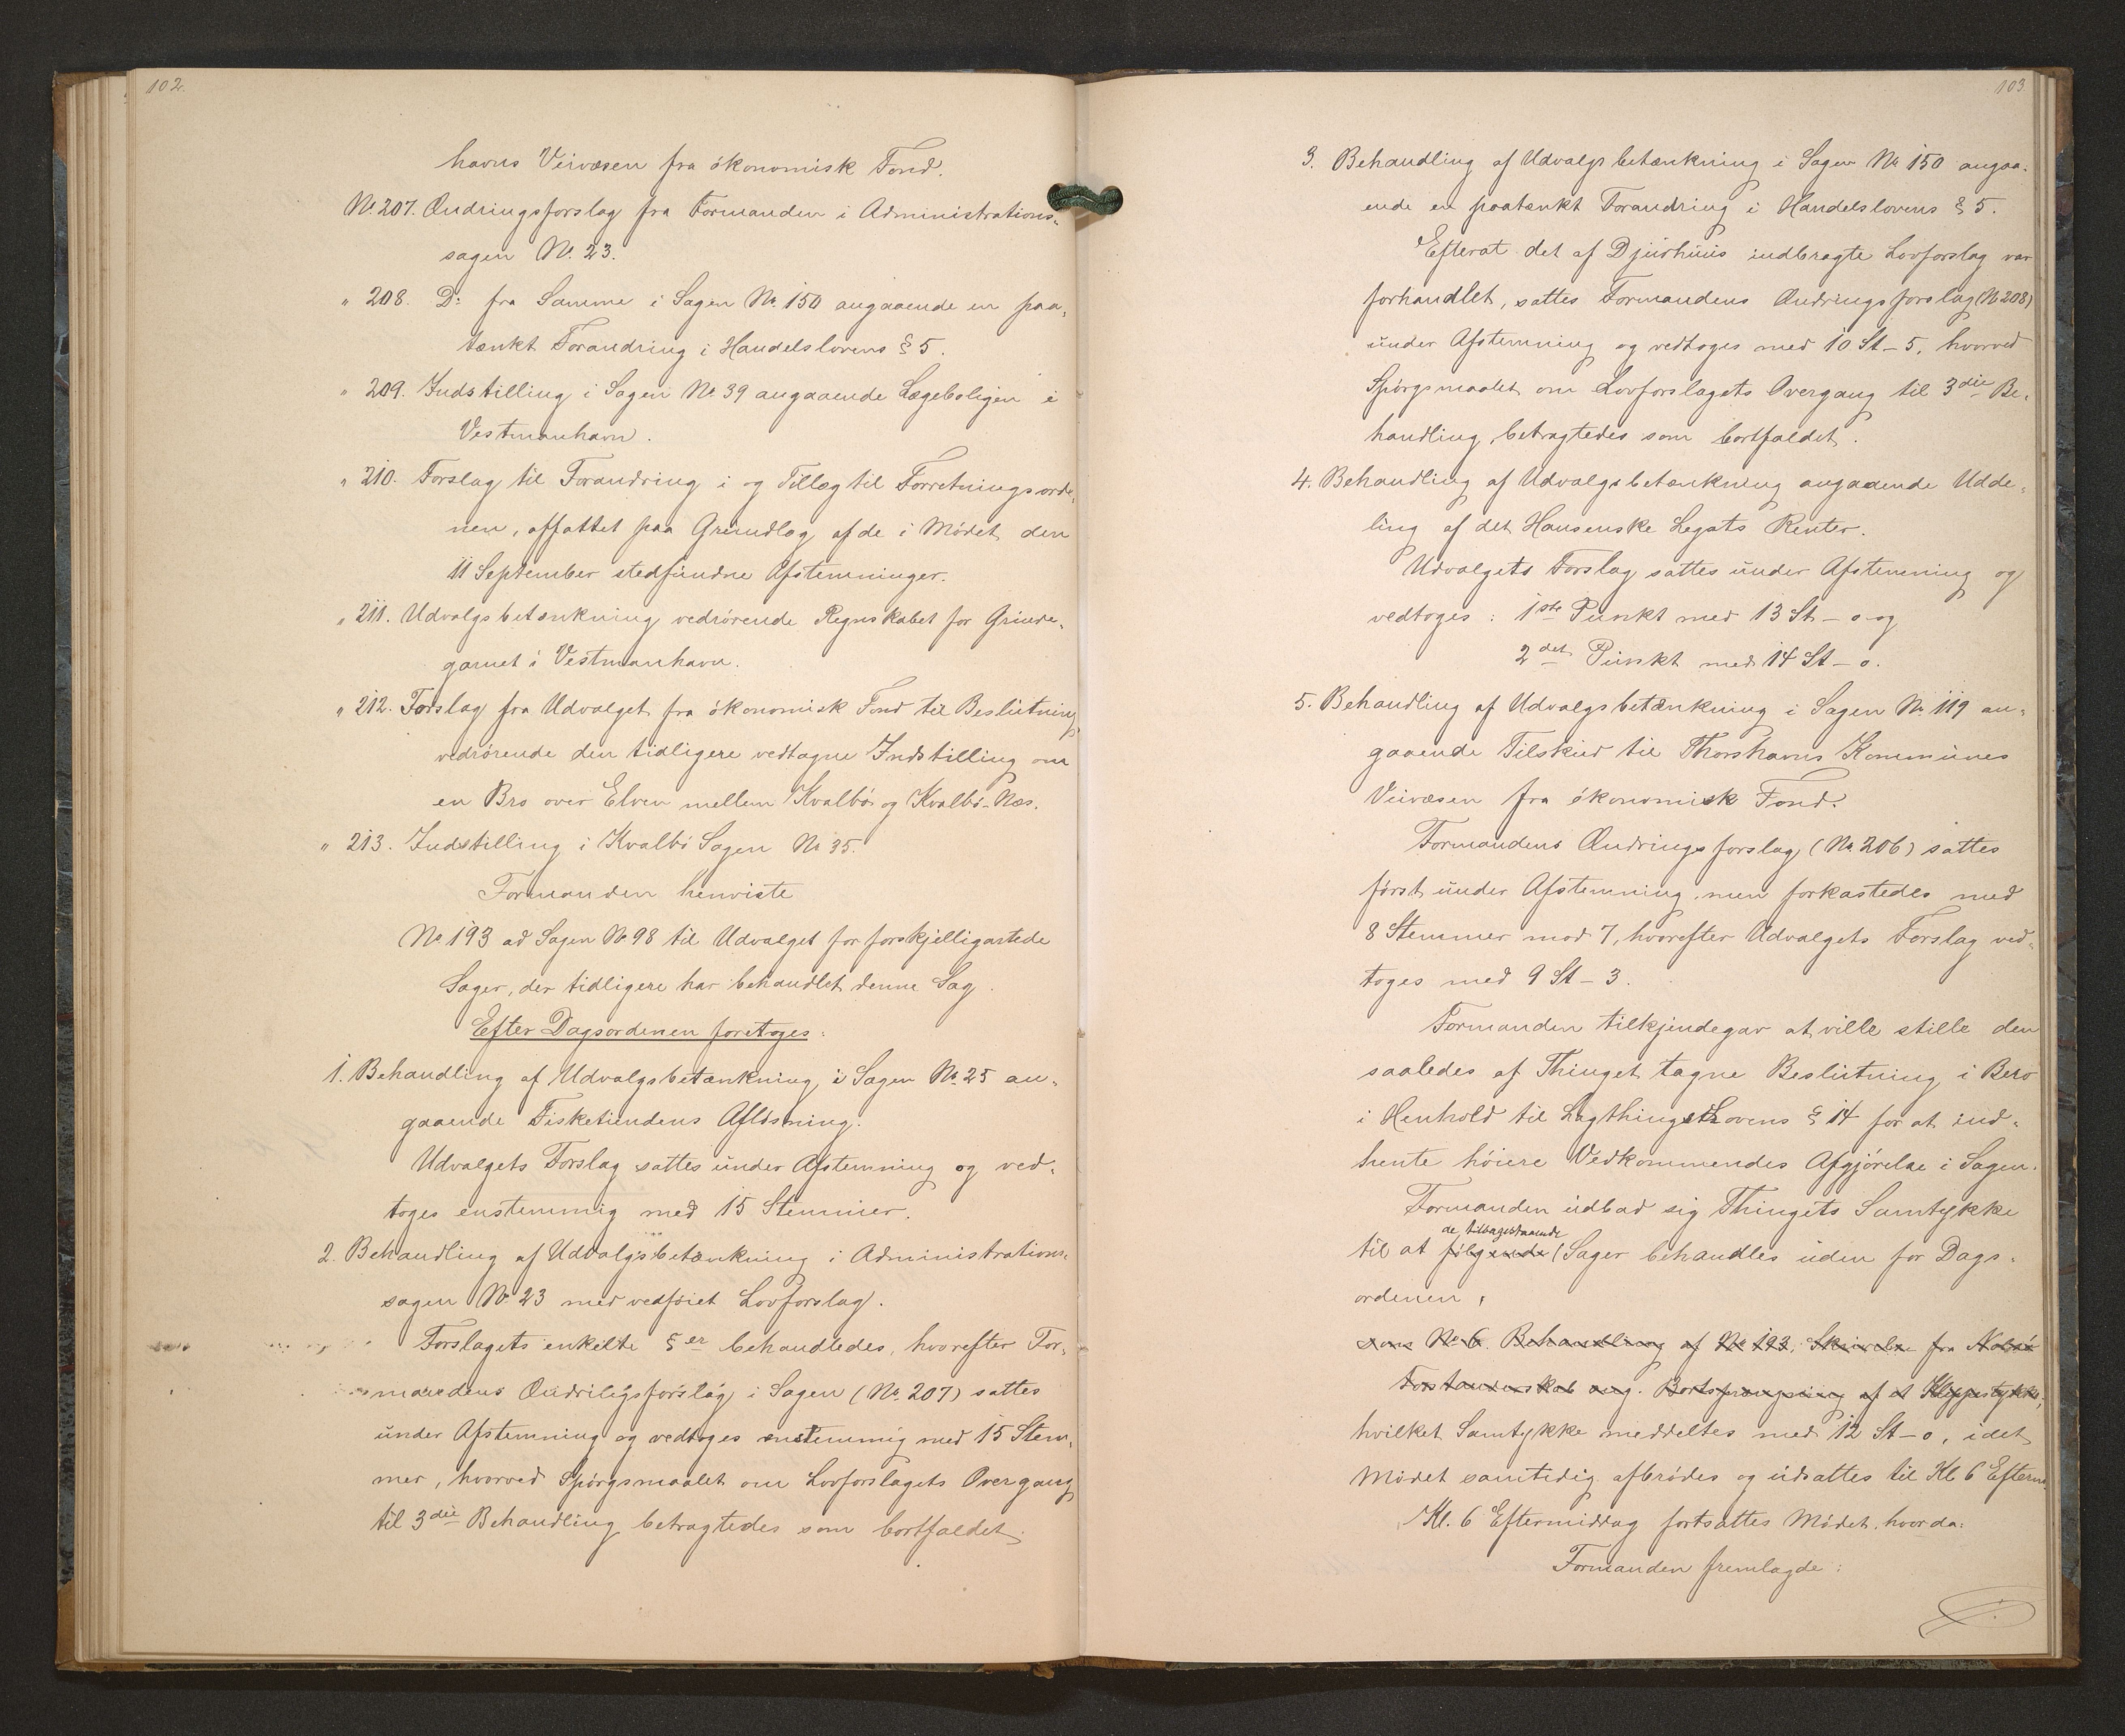 102.
havns Veivæsen fra ökonomisk Fond.
No. 207. Ændringsforslag fra Formanden i Administrations-
sagen No. 23.
" 208. Do: fra Samme i Sagen No. 150 angaaende en paa-
tænkt Forandring i Handelslovens § 5.
" 209. Indstilling i Sagen No. 39 angaaende Lægeboligen i
Vestmanhavn.
" 210. Forslag til Forandring i og Tillæg til Forretningsorde-
nen, affattet paa Grundlag af de i Mödet den
11 September stedfundne Afstemninger.
" 211. Udvalgsbetænkning vedrörende Regnskabet for Grinde-
garnet i Vestmanhavn.
" 212. Forslag fra Udvalget fra ökonomisk Fond til Beslutning
vedrörende den tidligere vedtagne Indstilling om
en Bro over Elven mellem Kvalbö og Kvalbö-Næs.
" 213. Indstilling i Kvalbö Sagen No 35.
Formanden henviste
No 193 ad Sagen No 98 til Udvalget for forskjelligartede
Sager, der tidligere har behandlet denne Sag.
Efter Dagsordenen foretoges:
1. Behandling af Udvalgsbetænkning i Sagen No. 25 an-
gaaende Fisketiendens Aflösning.
Udvalgets Forslag sattes under Afstemning og ved-
toges enstemmig med 15 Stemmer.
2. Behandling af Udvalgsbetænkning i Administrations-
sagen No 23 med vedföiet Lovforslag.
Forslagets enkelte § er behandledes, hvorefter For-
mandens Ændringsforslag i Sagen (No. 207) sattes
under Afstemning og vedtoges enstemmig med 15 Stem-
mer, hvorved Spörgsmaalet om Lovforslagets Overgang
til 3die Behandling betragtedes som bortfaldet.
103
3. Behandling af Udvalgsbetænkning i Sagen No 150 angaa-
ende en paatænkt Forandring i Handelslovens § 5.
Efterat det af Djurhuus indbragte Lovforslag var
forhandlet, sattes Formandens Ændringsforslag (No 208)
under Afstemning og vedtoges med 10 St - 5, hvorved
Spörgsmaalet om Lovforslagets Overgang til 3die Be-
handling betragtedes som bortfaldet.
4. Behandling af Udvalgsbetænkning angaaende Udde-
ling af det Hansenske Legats Renter.
Udvalgets Forslag sattes under Afstemning og
vedtoges: 1ste Punkt med 13 St - 0 og
2det Punkt med 14 St - 0.
5. Behandling af Udvalgsbetænkning i Sagen No. 119 an-
gaaende Tilskud til Thorshavns Kommunes
Veivæsen fra ökonomisk Fond.
Formandens Ændringsforslag (No. 206) sattes
först under Afstemning, men forkastedes med
8 Stemmer mod 7, hvorefter Udvalgets Forslag ved-
toges med 9 St - 3.
Formanden tilkjendegav at ville stille den
saaledes af Thinget tagne Beslutning i Bero
i Henhold til LagthingsLovens § 14 for at ind-
hente höiere Vedkommendes Afgjörelse i Sagen.
Formanden udbad sig Thingets Samtykke
de tilbagestaaende
til at fölgende Sager behandles uden for Dags-
ordenen,
som No 6. Behandling af No 193, Skrivelse fra Nolsö
Forstanderskab ang. Bortsprængning af et Klippestykke;
hvilket Samtykke meddeltes med 12 St - 0, idet
Mödet samtidig afbrödes og udsattes til Kl 6 Efterm.
Kl. 6 Eftermiddag fortsattes Mödet, hvorda:
Formanden fremlagde: